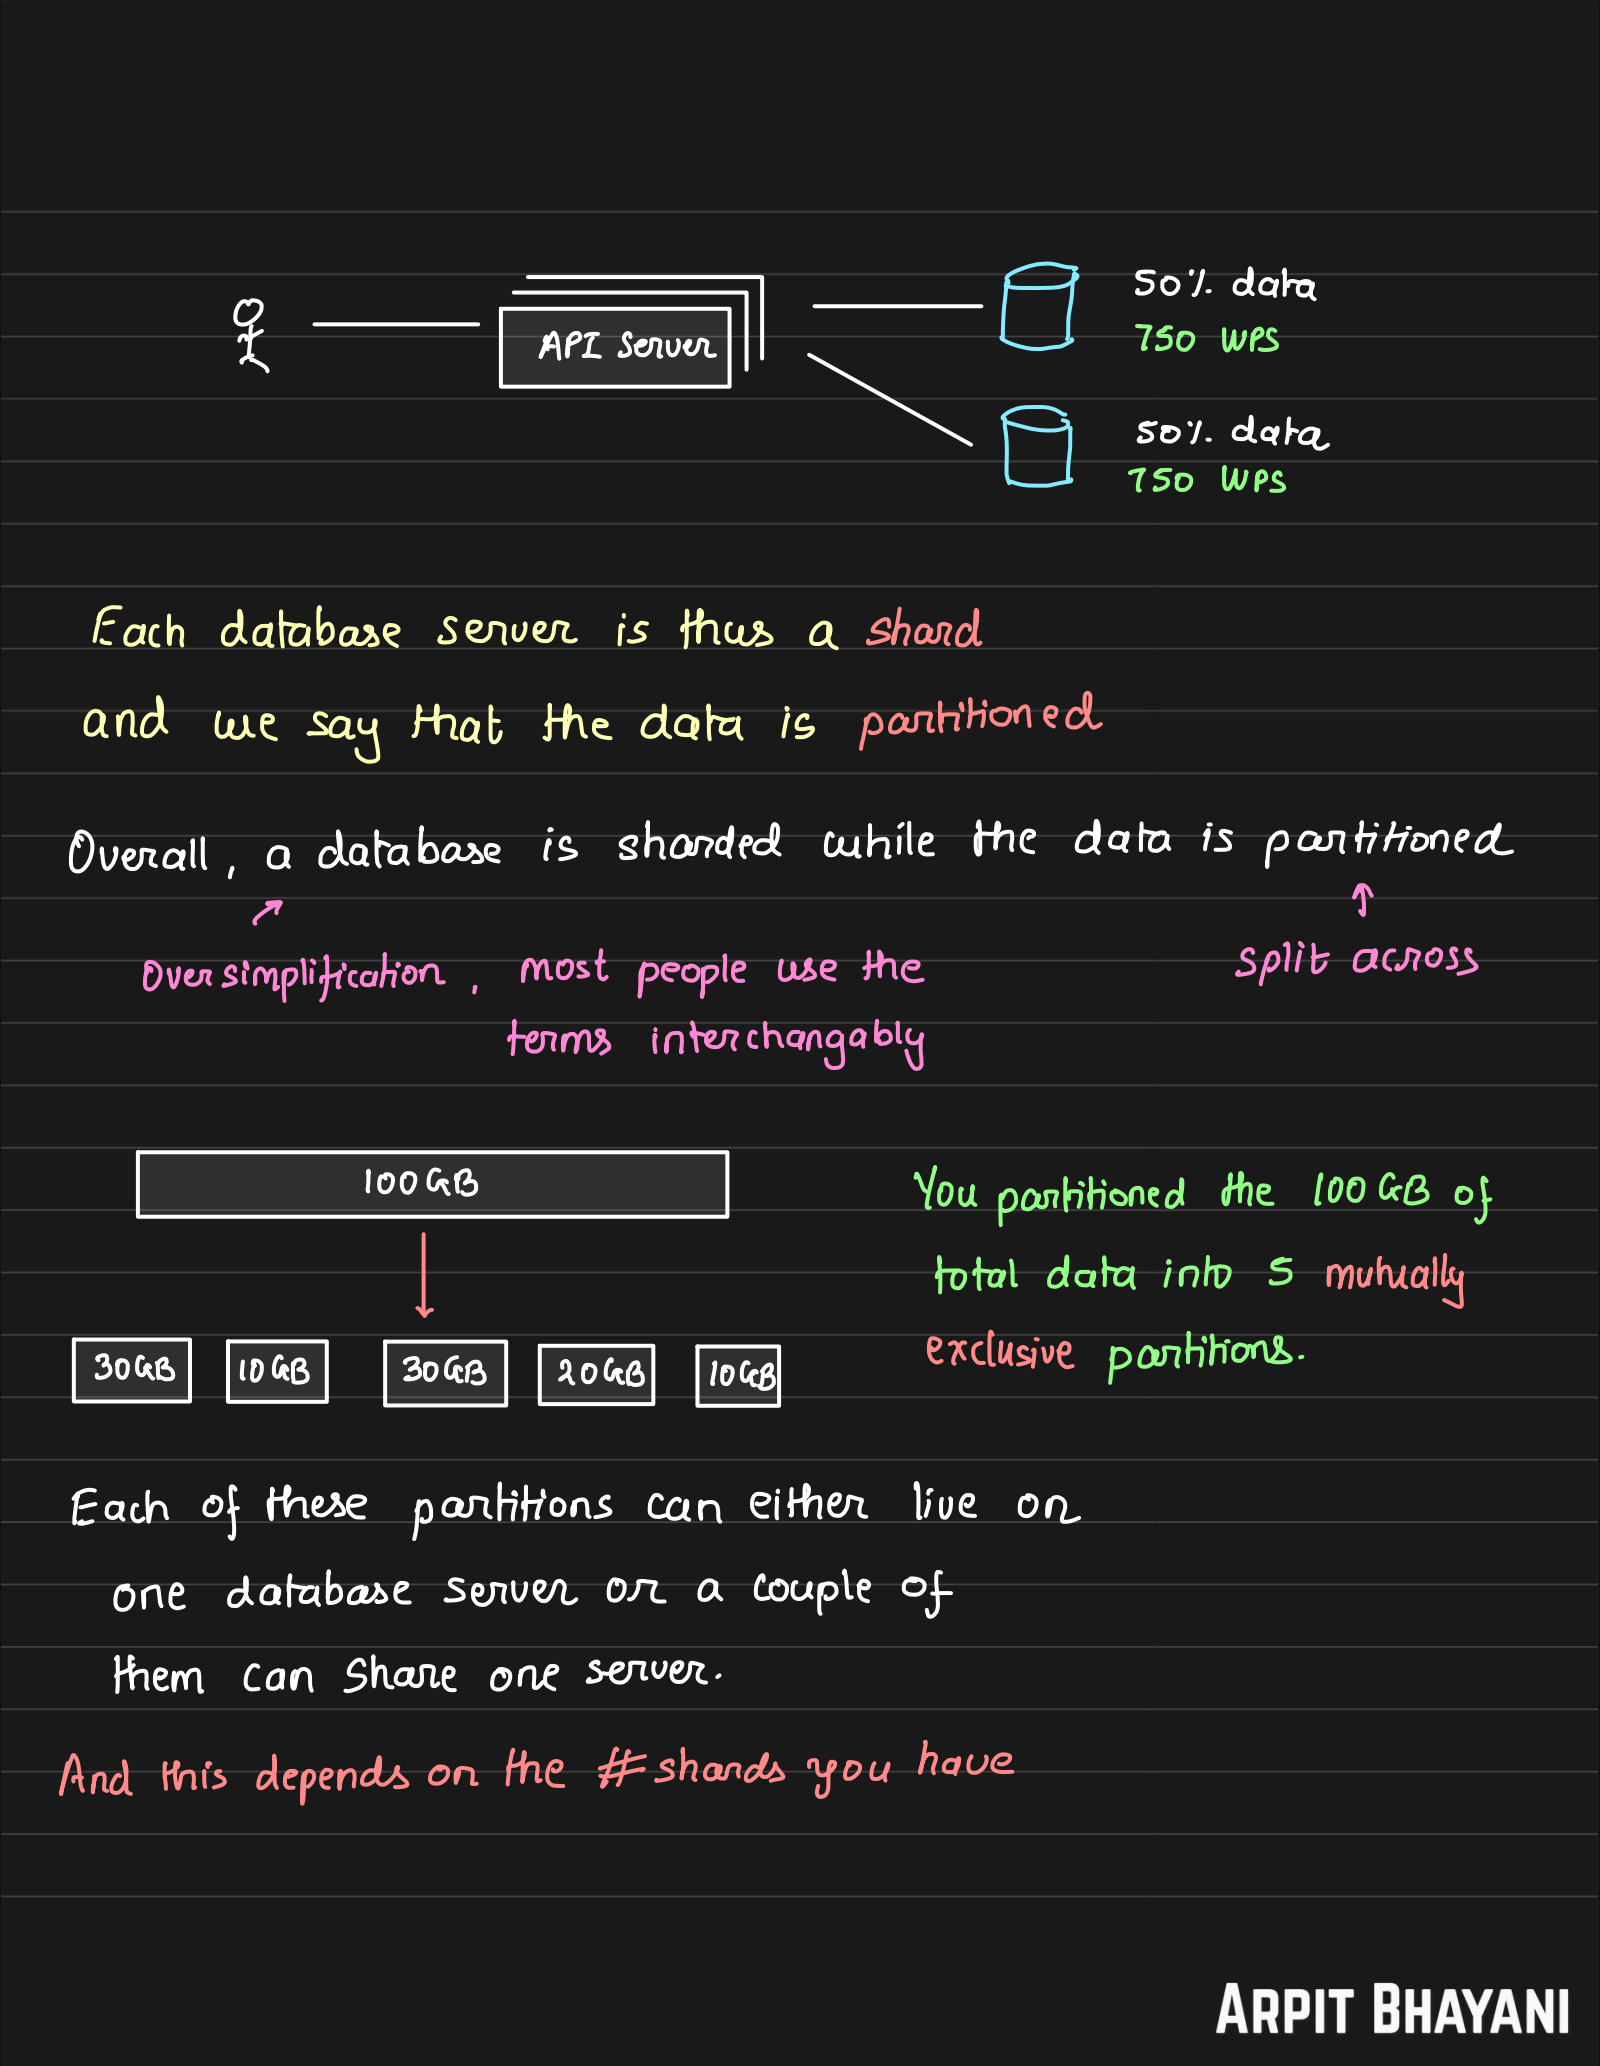 API Server
50% data
750 WPS
50% data
750 WPS
Each database server is thus a shard
and we say that the data is partitioned
Overall, a database is sharded while the data is partitioned
Oversimplification, most people use the
terms interchangably
split across
100 GB
30GB 10GB 30GB 20GB 10GB
You partitioned the 100 GB of
total data into 5 mutually
exclusive partitions.
Each of these partitions can either live on
one database server or a couple of
them can share one server.
And this depends on the # shards you have
ARPIT BHAYANI